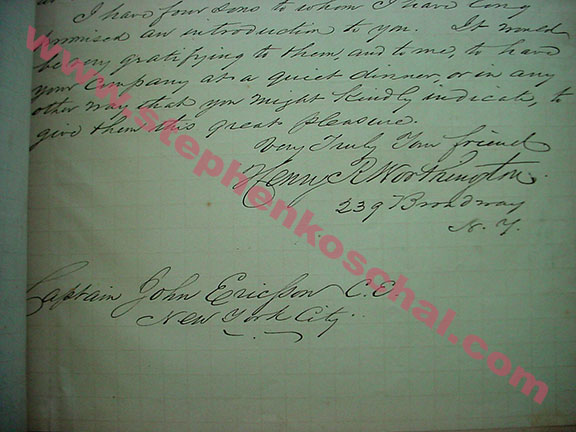 I have four sons to whom I have long
promised an introduction to you. It would
be very gratifying to them, and to me, to have
your Company at a quiet dinner, or in any
other way that you might kindly indicate, to
give them this great pleasure.
Very Truly Your friend
Henry R Worthington
239 Broadway
N. Y.
Captain John Ericsson C. E.
New York City
www.stephenkoschal.com